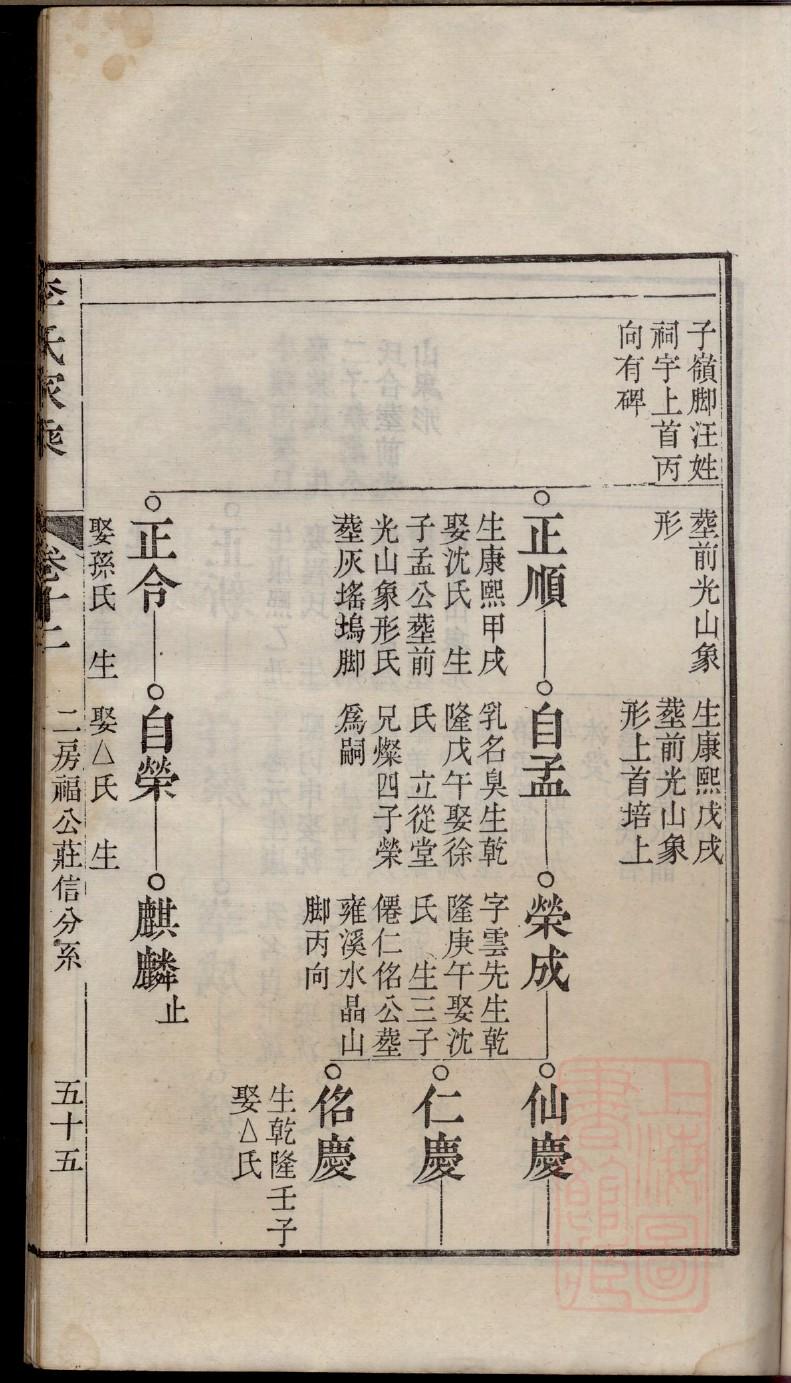 子嶺脚汪姓
祠宇上首丙
向有碑
塟前光山象
形
生康熙戊戌
塟前光山象
形上首培上
正順
生康熙甲戌
娶沈氏 生
子孟公塟前
光山象形氏
塟灰塢脚
自孟
乳名臭生乾
隆戊午娶徐
氏 立從堂
兄燦四子榮
爲嗣
榮成
字雲先生乾
隆庚午娶沈
氏 生三子
僊仁佲公塟
雍溪水晶山
脚丙向
仙慶
仁慶
佲慶
生乾隆壬子
娶△氏
正令
娶孫氏 生
自榮
娶△氏 生
麒麟
止
李氏家乘
卷十二
二房福公莊信分系
五十五
上海圖書館藏